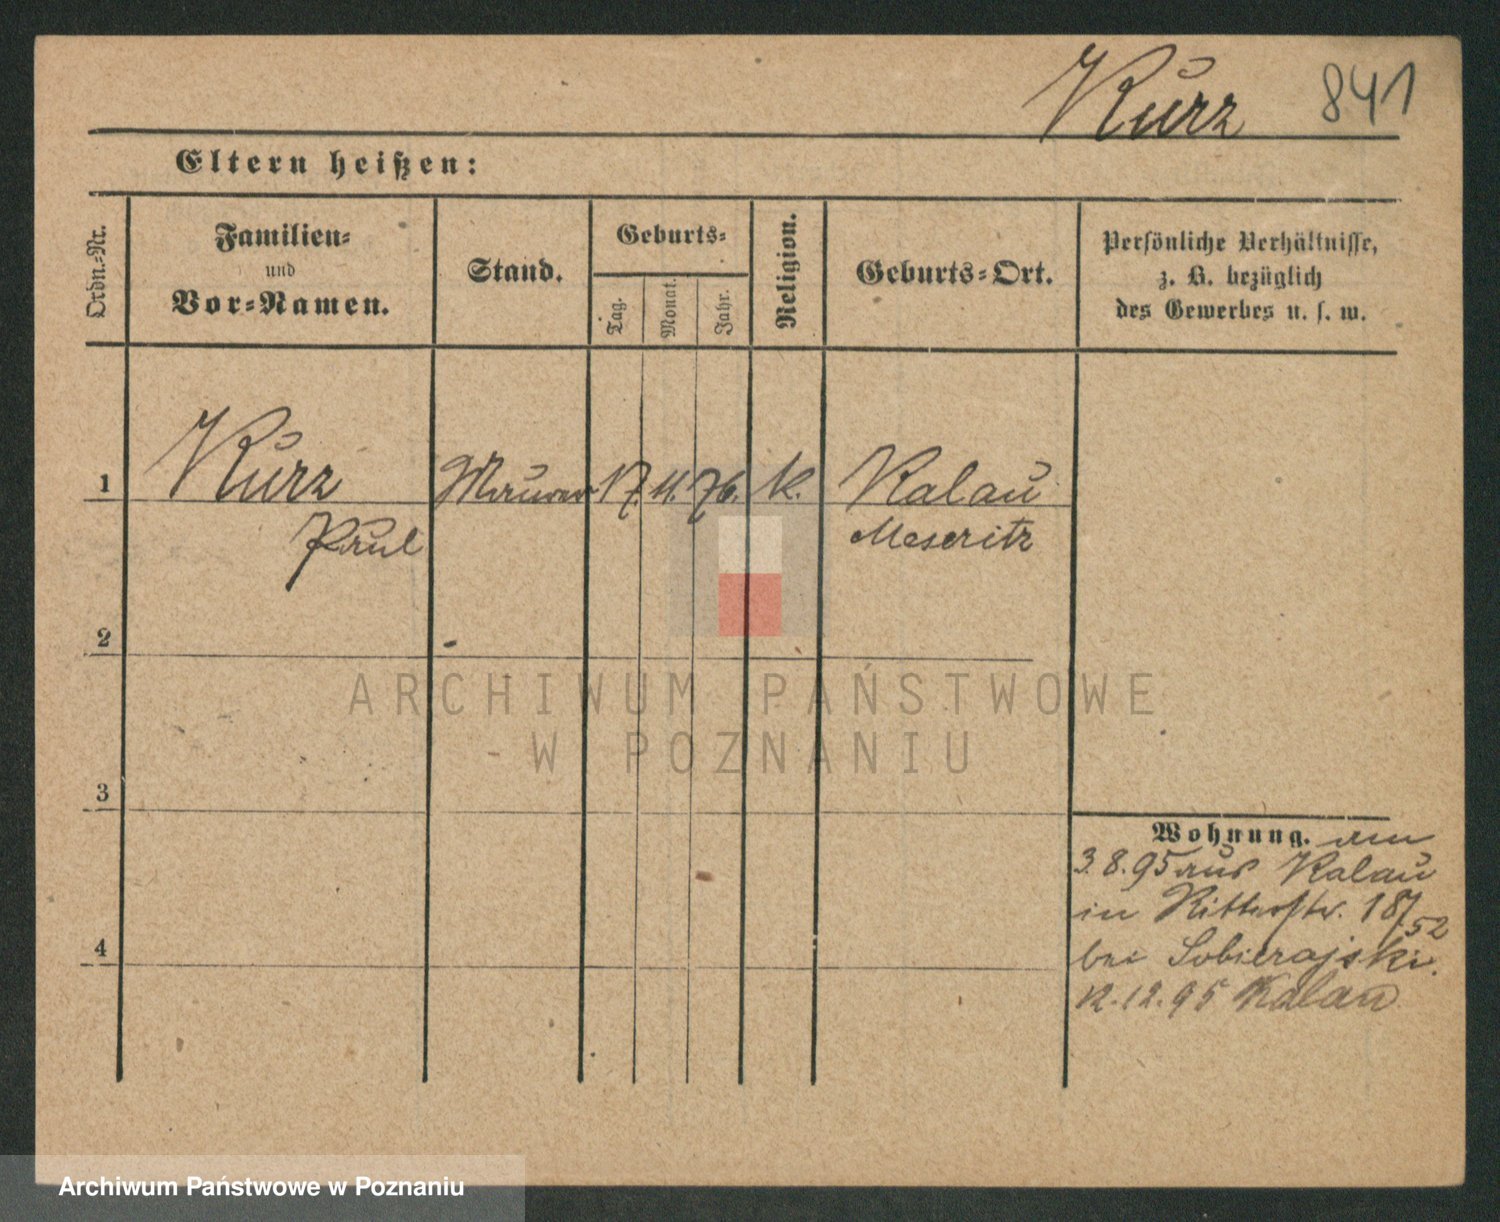 Kurz 841
Eltern heißen:
Ordn.-Nr.
Familien-
und
Vor-Namen.
Stand.
Geburts-
Tag.
Monat.
Jahr.
Religion.
Geburts-Ort.
Persönliche Verhältnisse,
z. B. bezüglich
des Gewerbes u. s. w.
1 Kurz Maurer 17. 11. 76. k. Kalau
Paul Meseritz
2
ARCHIWUM PAŃSTWOWE
W POZNANIU
3
Wohnung. am
3.8.95 aus Kalau
in Ritterstr. 187/52
bei Sobierajski.
12.12.95 Kalau
4
Archiwum Państwowe w Poznaniu